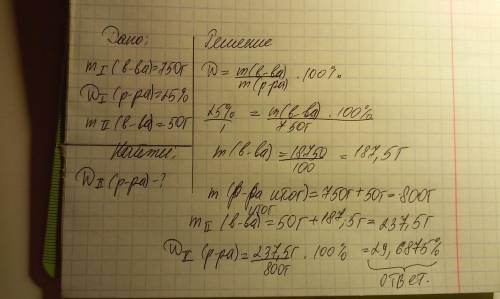 Дано:
m I (в-ва)=750г
W I (р-ра)=25%
m II (в-ва)=50г
Найти:
W II (р-ра)-?
Решение
W = m(в-ва) / m(р-ра) · 100%
25% / 1 = m(в-ва) / 750г · 100%
m(в-ва) = 18750 / 100 = 187,5г
m (р-ра итог)=750г+50г=800г
m II итог (в-ва)=50г+187,5г=237,5г
W II (р-ра)= 237,5г / 800г · 100% =29,6875%
ответ.